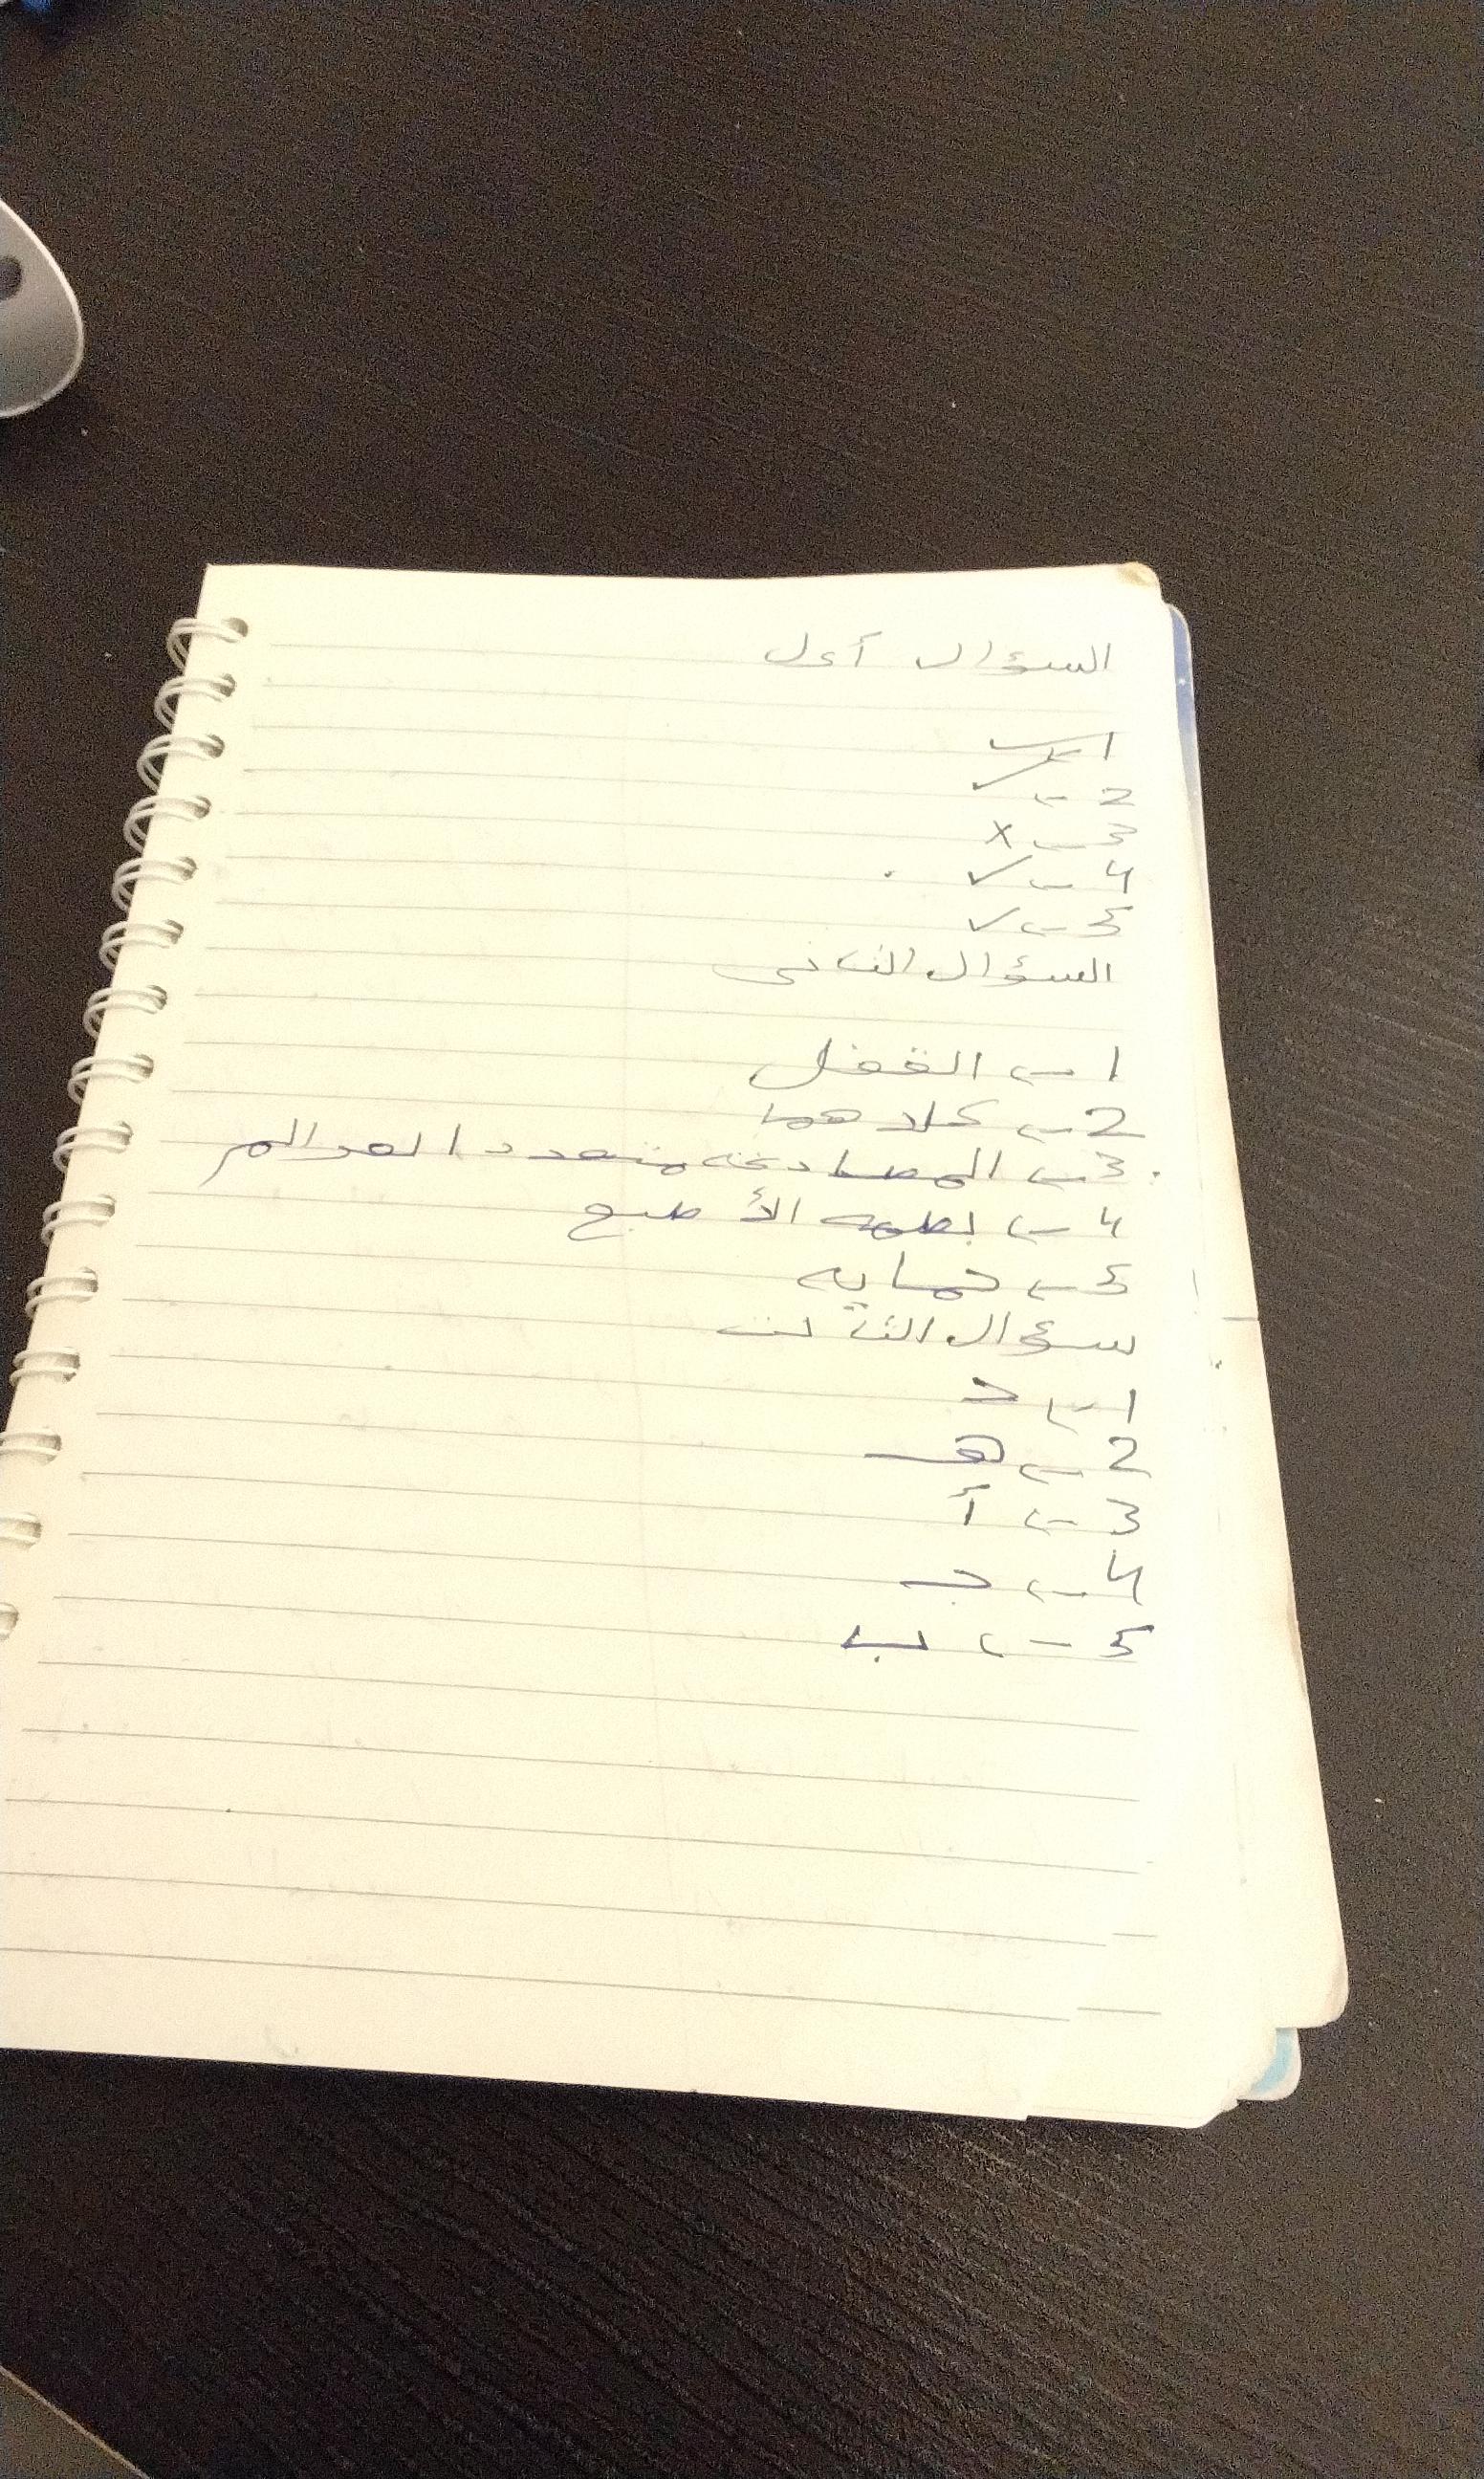 السؤال أول
1 ـ ✓
2 ـ ✓
3 ـ x
4 ـ ✓
5 ـ ✓
السؤال الثانى
1 ـ القفل
2 ـ كلاهما
3 ـ المصادقه متعدد العوالم
4 ـ بصمه الأصبع
5 ـ حمايه
سؤال الثالث
1 ـ د
2 ـ هـ
3 ـ أ
4 ـ جـ
5 ـ ب